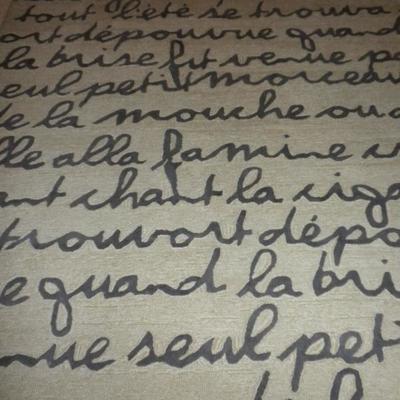 tout l'été se trouva
ort dépouvue quand
la brise fit venue pe
eul petit morceau
de la mouche ou d
lle alla famine c
ant chant la ciga
trouvort dépo
e quand la bri
nue seul peti